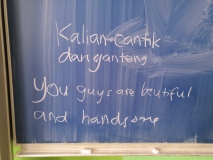 Kalian cantik
dan ganteng
you guys are beutiful
and handsome